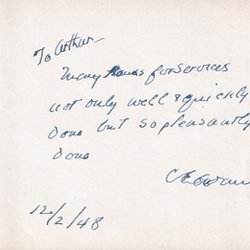 To Arthur—
Many thanks for services
not only well & quickly
done but so pleasantly
done
12/2/48